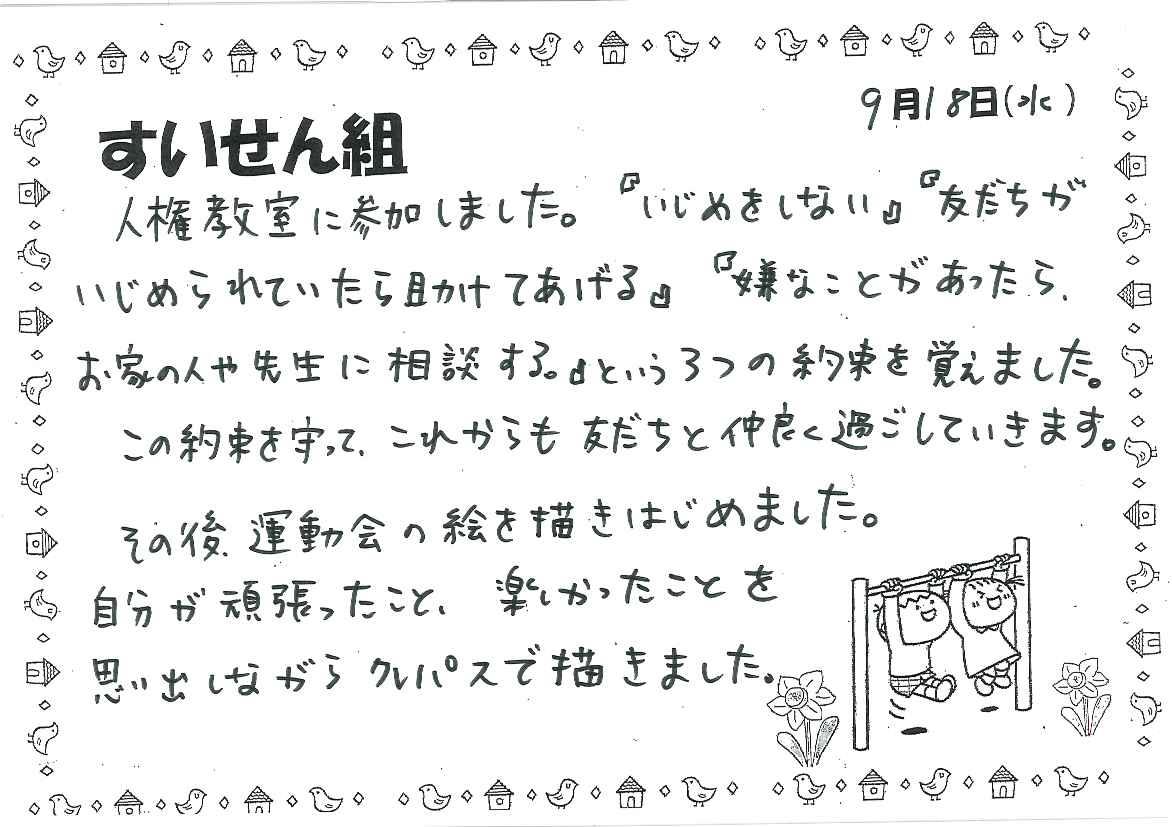 9月18日(水)
すいせん組
人権教室に参加しました。『いじめをしない』『友だちが
いじめられていたら助けてあげる』『嫌なことがあったら、
お家の人や先生に相談する。』という3つの約束を覚えました。
この約束を守って、これからも友だちと仲良く過ごしていきます。
その後、運動会の絵を描きはじめました。
自分が頑張ったこと、楽しかったことを
思い出しながらクレパスで描きました。